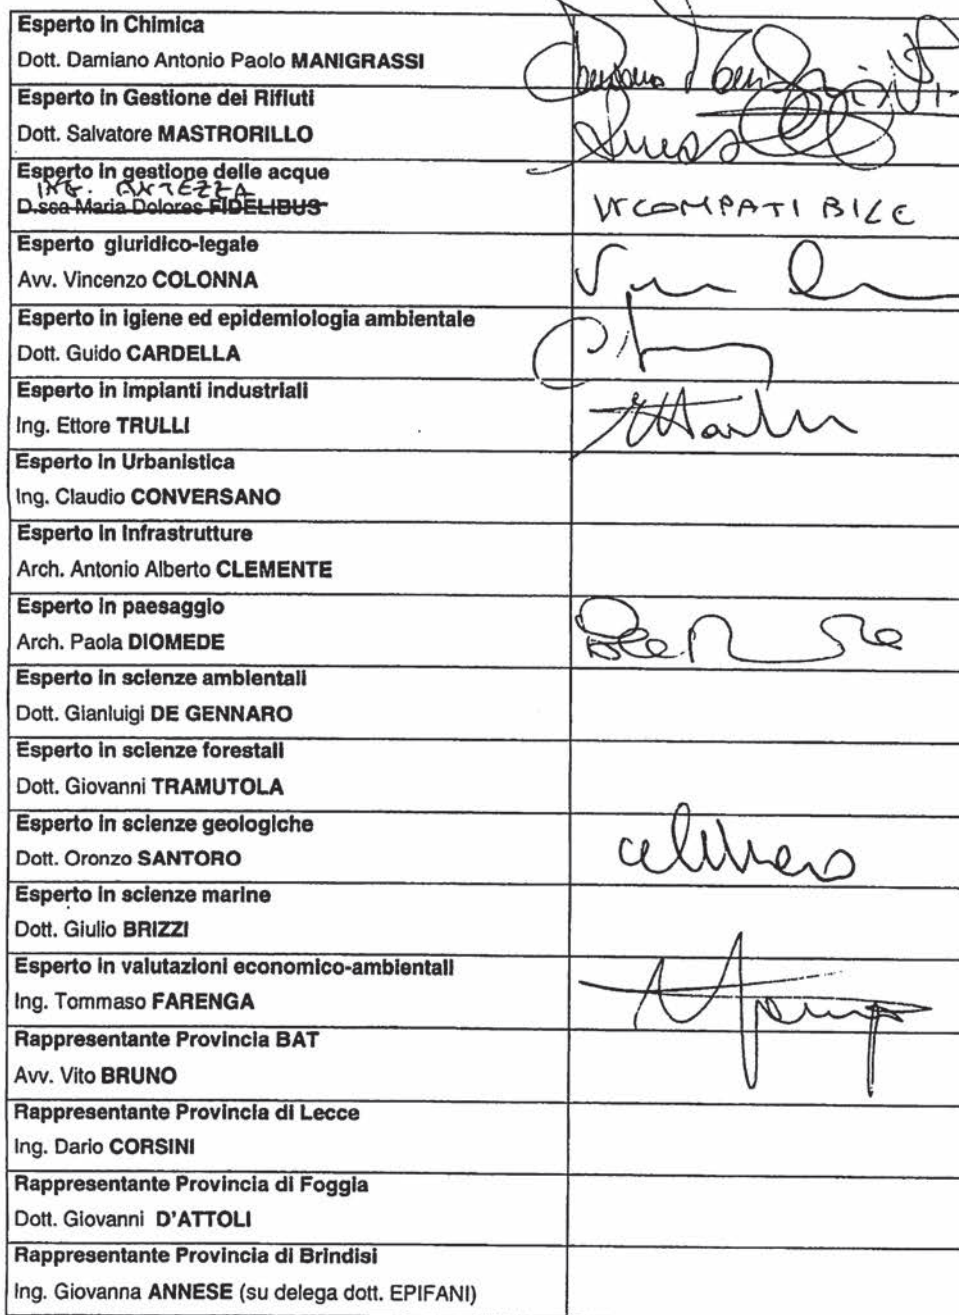 Esperto in Chimica
Dott. Damiano Antonio Paolo MANIGRASSI
Esperto in Gestione dei Rifiuti
Dott. Salvatore MASTRORILLO
Esperto in gestione delle acque
ING. ANTEZZA
D.ssa Maria Dolores FIDELIBUS
INCOMPATIBILE
Esperto giuridico-legale
Avv. Vincenzo COLONNA
Esperto in igiene ed epidemiologia ambientale
Dott. Guido CARDELLA
Esperto in impianti industriali
Ing. Ettore TRULLI
Esperto in Urbanistica
Ing. Claudio CONVERSANO
Esperto in Infrastrutture
Arch. Antonio Alberto CLEMENTE
Esperto in paesaggio
Arch. Paola DIOMEDE
Esperto in scienze ambientali
Dott. Gianluigi DE GENNARO
Esperto in scienze forestali
Dott. Giovanni TRAMUTOLA
Esperto in scienze geologiche
Dott. Oronzo SANTORO
Esperto in scienze marine
Dott. Giulio BRIZZI
Esperto in valutazioni economico-ambientali
Ing. Tommaso FARENGA
Rappresentante Provincia BAT
Avv. Vito BRUNO
Rappresentante Provincia di Lecce
Ing. Dario CORSINI
Rappresentante Provincia di Foggia
Dott. Giovanni D'ATTOLI
Rappresentante Provincia di Brindisi
Ing. Giovanna ANNESE (su delega dott. EPIFANI)